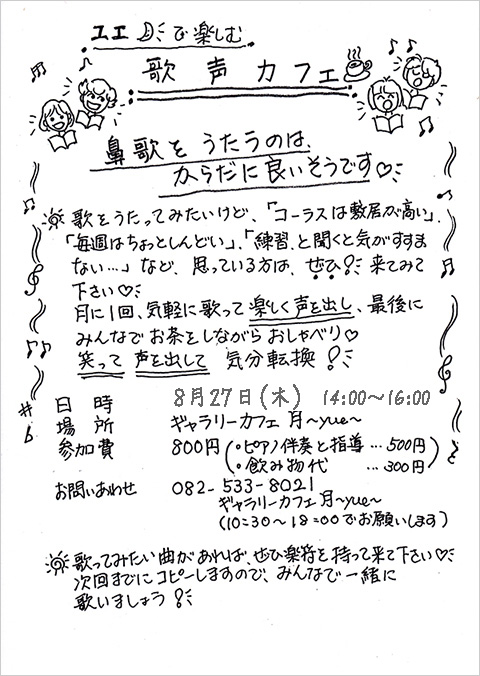 ユエ で楽しむ
歌声カフェ
鼻歌を うたうのは、
からだに良いそうです♡
歌をうたってみたいけど、「コーラスは敷居が高い」、
「毎週はちょっとしんどい」、「練習、と聞くと気がすすま
ない…」など、思っている方は、ぜひ! 来てみて
下さい♡
月に1回、気軽に歌って 楽しく声を出し、最後に
みんなでお茶をしながら おしゃべり♡
笑って 声を出して 気分転換!
日時 8月27日(木) 14:00〜16:00
場所 ギャラリーカフェ 月〜yue〜
参加費 800円(・ピアノ伴奏と指導…500円
・飲み物代 …300円)
お問いあわせ 082-533-8021
ギャラリーカフェ月〜yue〜
(10:30〜18:00でお願いします)
歌ってみたい曲があれば、ぜひ楽符を持って来て下さい♡
次回までにコピーしますので、みんなで一緒に
歌いましょう!